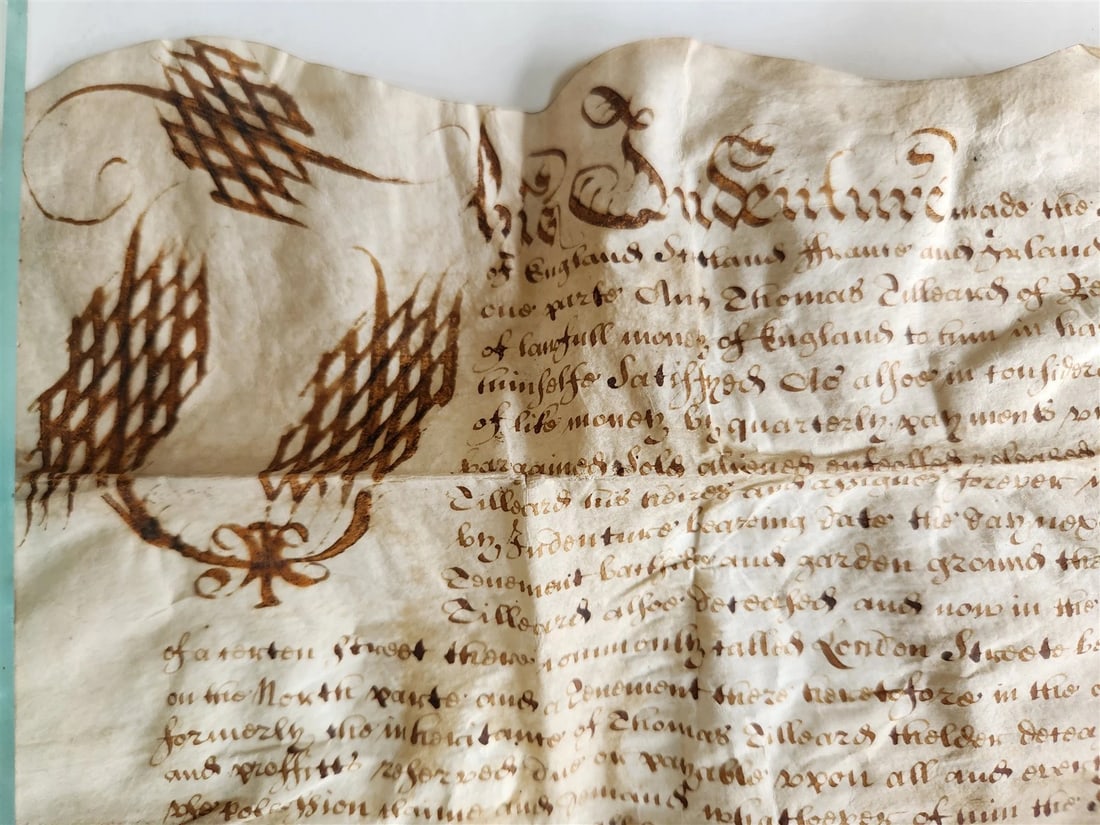 This Indenture made the
of England Scotland ffrance and Ireland
one parte And Thomas Tilleard of Re
of lawfull money of England to him in ha
himselfe Satisfyed As alsoe in consider
of like money by quarterly payments
bargained Sold aliened enfeoffed released
Tilleard his heires and assignes forever
by Indenture bearing date the day nex
Tenement backside and garden ground
Tilleard alsoe deceased and now in the
of a certen Street there comonly called London Streete be
on the North parte and a Tenement there heretofore in the
formerly the inheritance of Thomas Tilleard thelder decea
and proffitts reserved due or payable vpon all and every
and demand whatsoever of him the